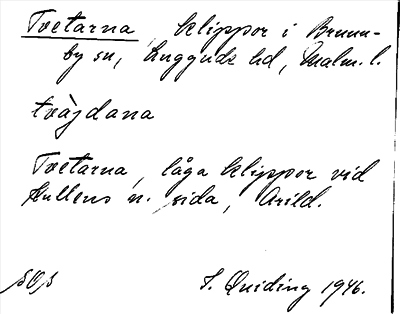 Tvetarna, klippor i Brunn-
by sn, Luggude hd, Malm. l.
tvàjdana
Tvetarna, låga klippor vid
Kullens n. sida, Arild.
S. Quiding 1946.